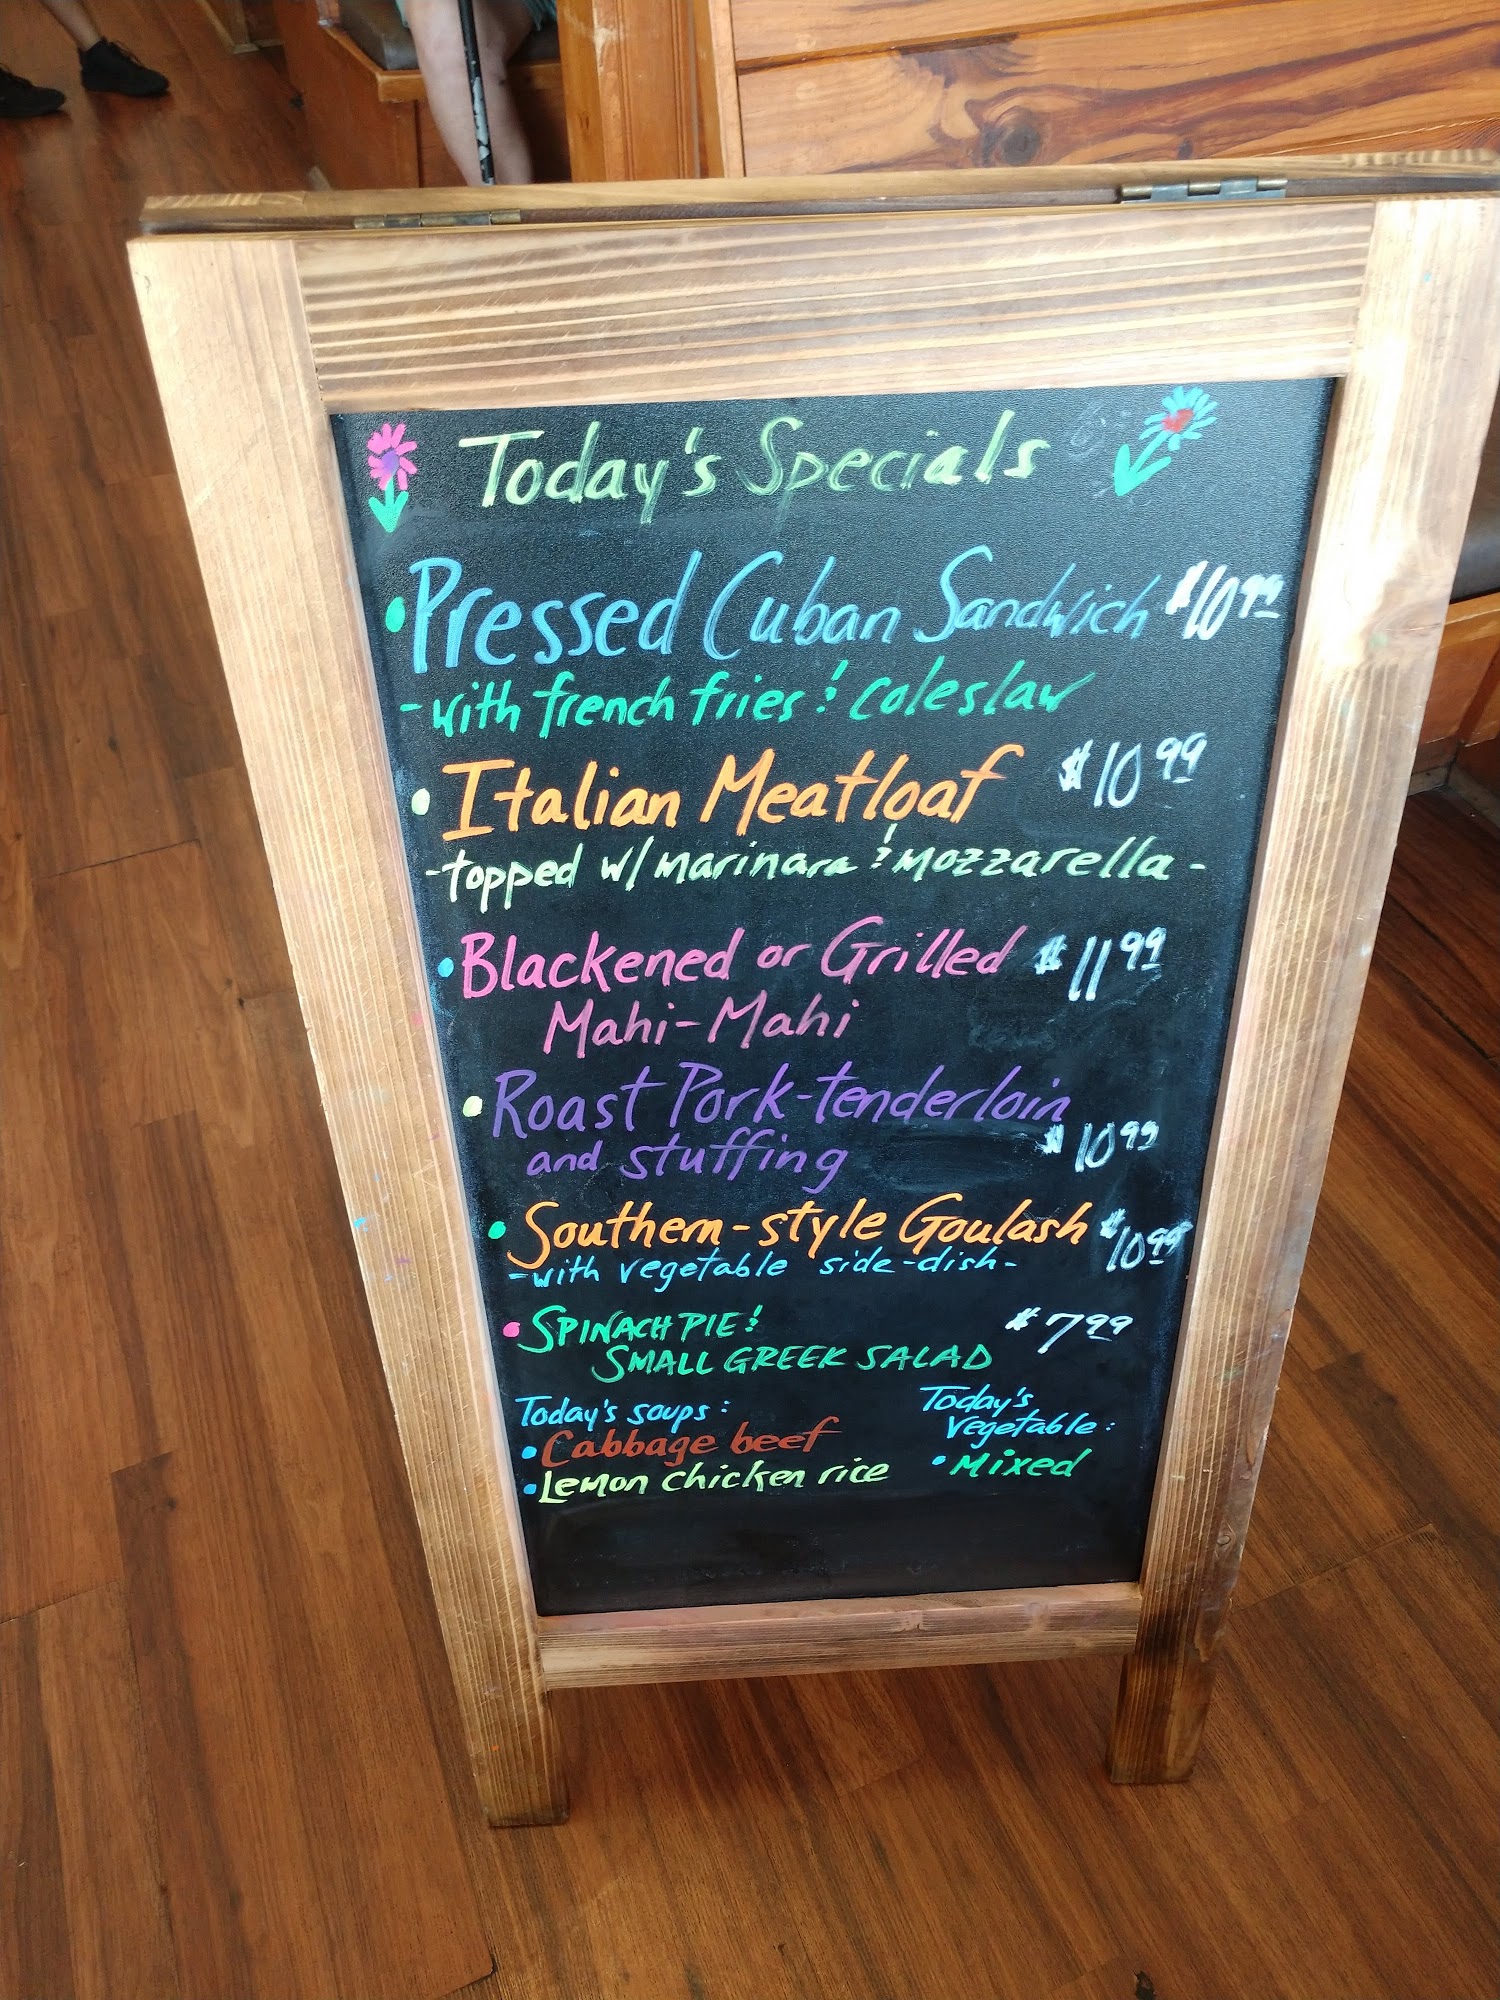 Today's Specials
• Pressed Cuban Sandwich $10.99
- with french fries & coleslaw
• Italian Meatloaf $10.99
- topped w/ marinara & mozzarella -
• Blackened or Grilled $11.99
Mahi-Mahi
• Roast Pork-tenderloin
and stuffing $10.99
• Southern-style Goulash $10.99
- with vegetable side-dish -
• SPINACH PIE & $7.99
SMALL GREEK SALAD
Today's soups:
• Cabbage beef
• Lemon chicken rice
Today's
vegetable:
• Mixed